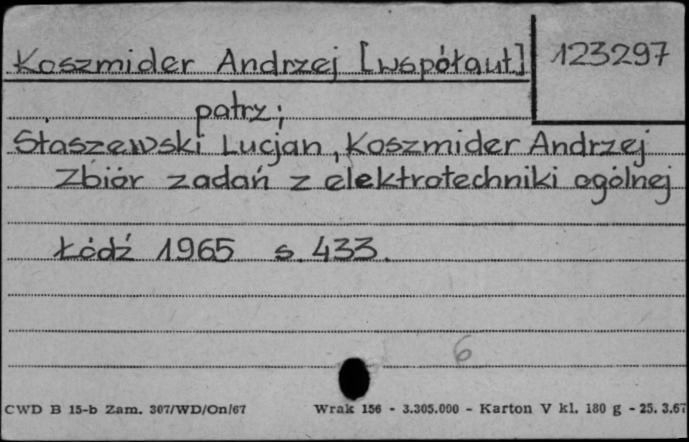 Koszmider Andrzej [współaut]
123297
patrz;
Staszewski Lucjan, Koszmider Andrzej
Zbiór zadań z elektrotechniki ogólnej
Łódź 1965 s. 433.
6
CWD B 15-b Zam. 307/WD/On/67 Wrak 156 - 3.305.000 - Karton V kl. 180 g - 25. 3.67